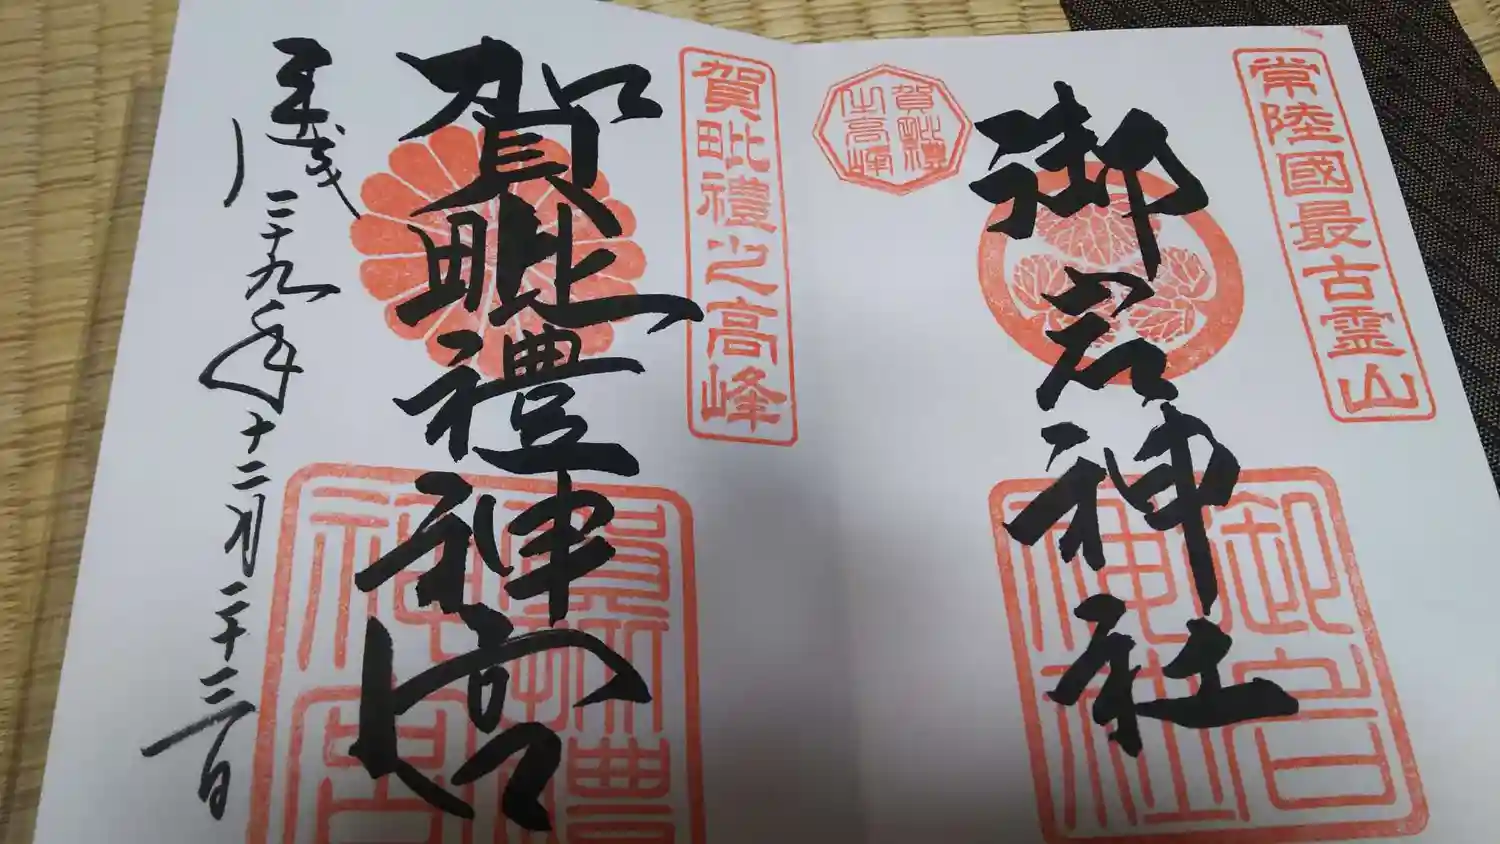 常陸國最古霊山
御岩神社
御岩神社
賀毗禮之高峰
賀毗禮之高峰
賀毗禮神宮
二十九年十二月二十三日